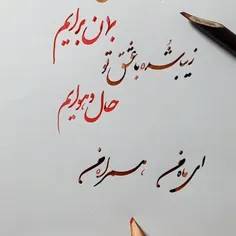 بمان برایم
زیبا شده با عشق تو
حال و هوایم
ای ماه من همراه من